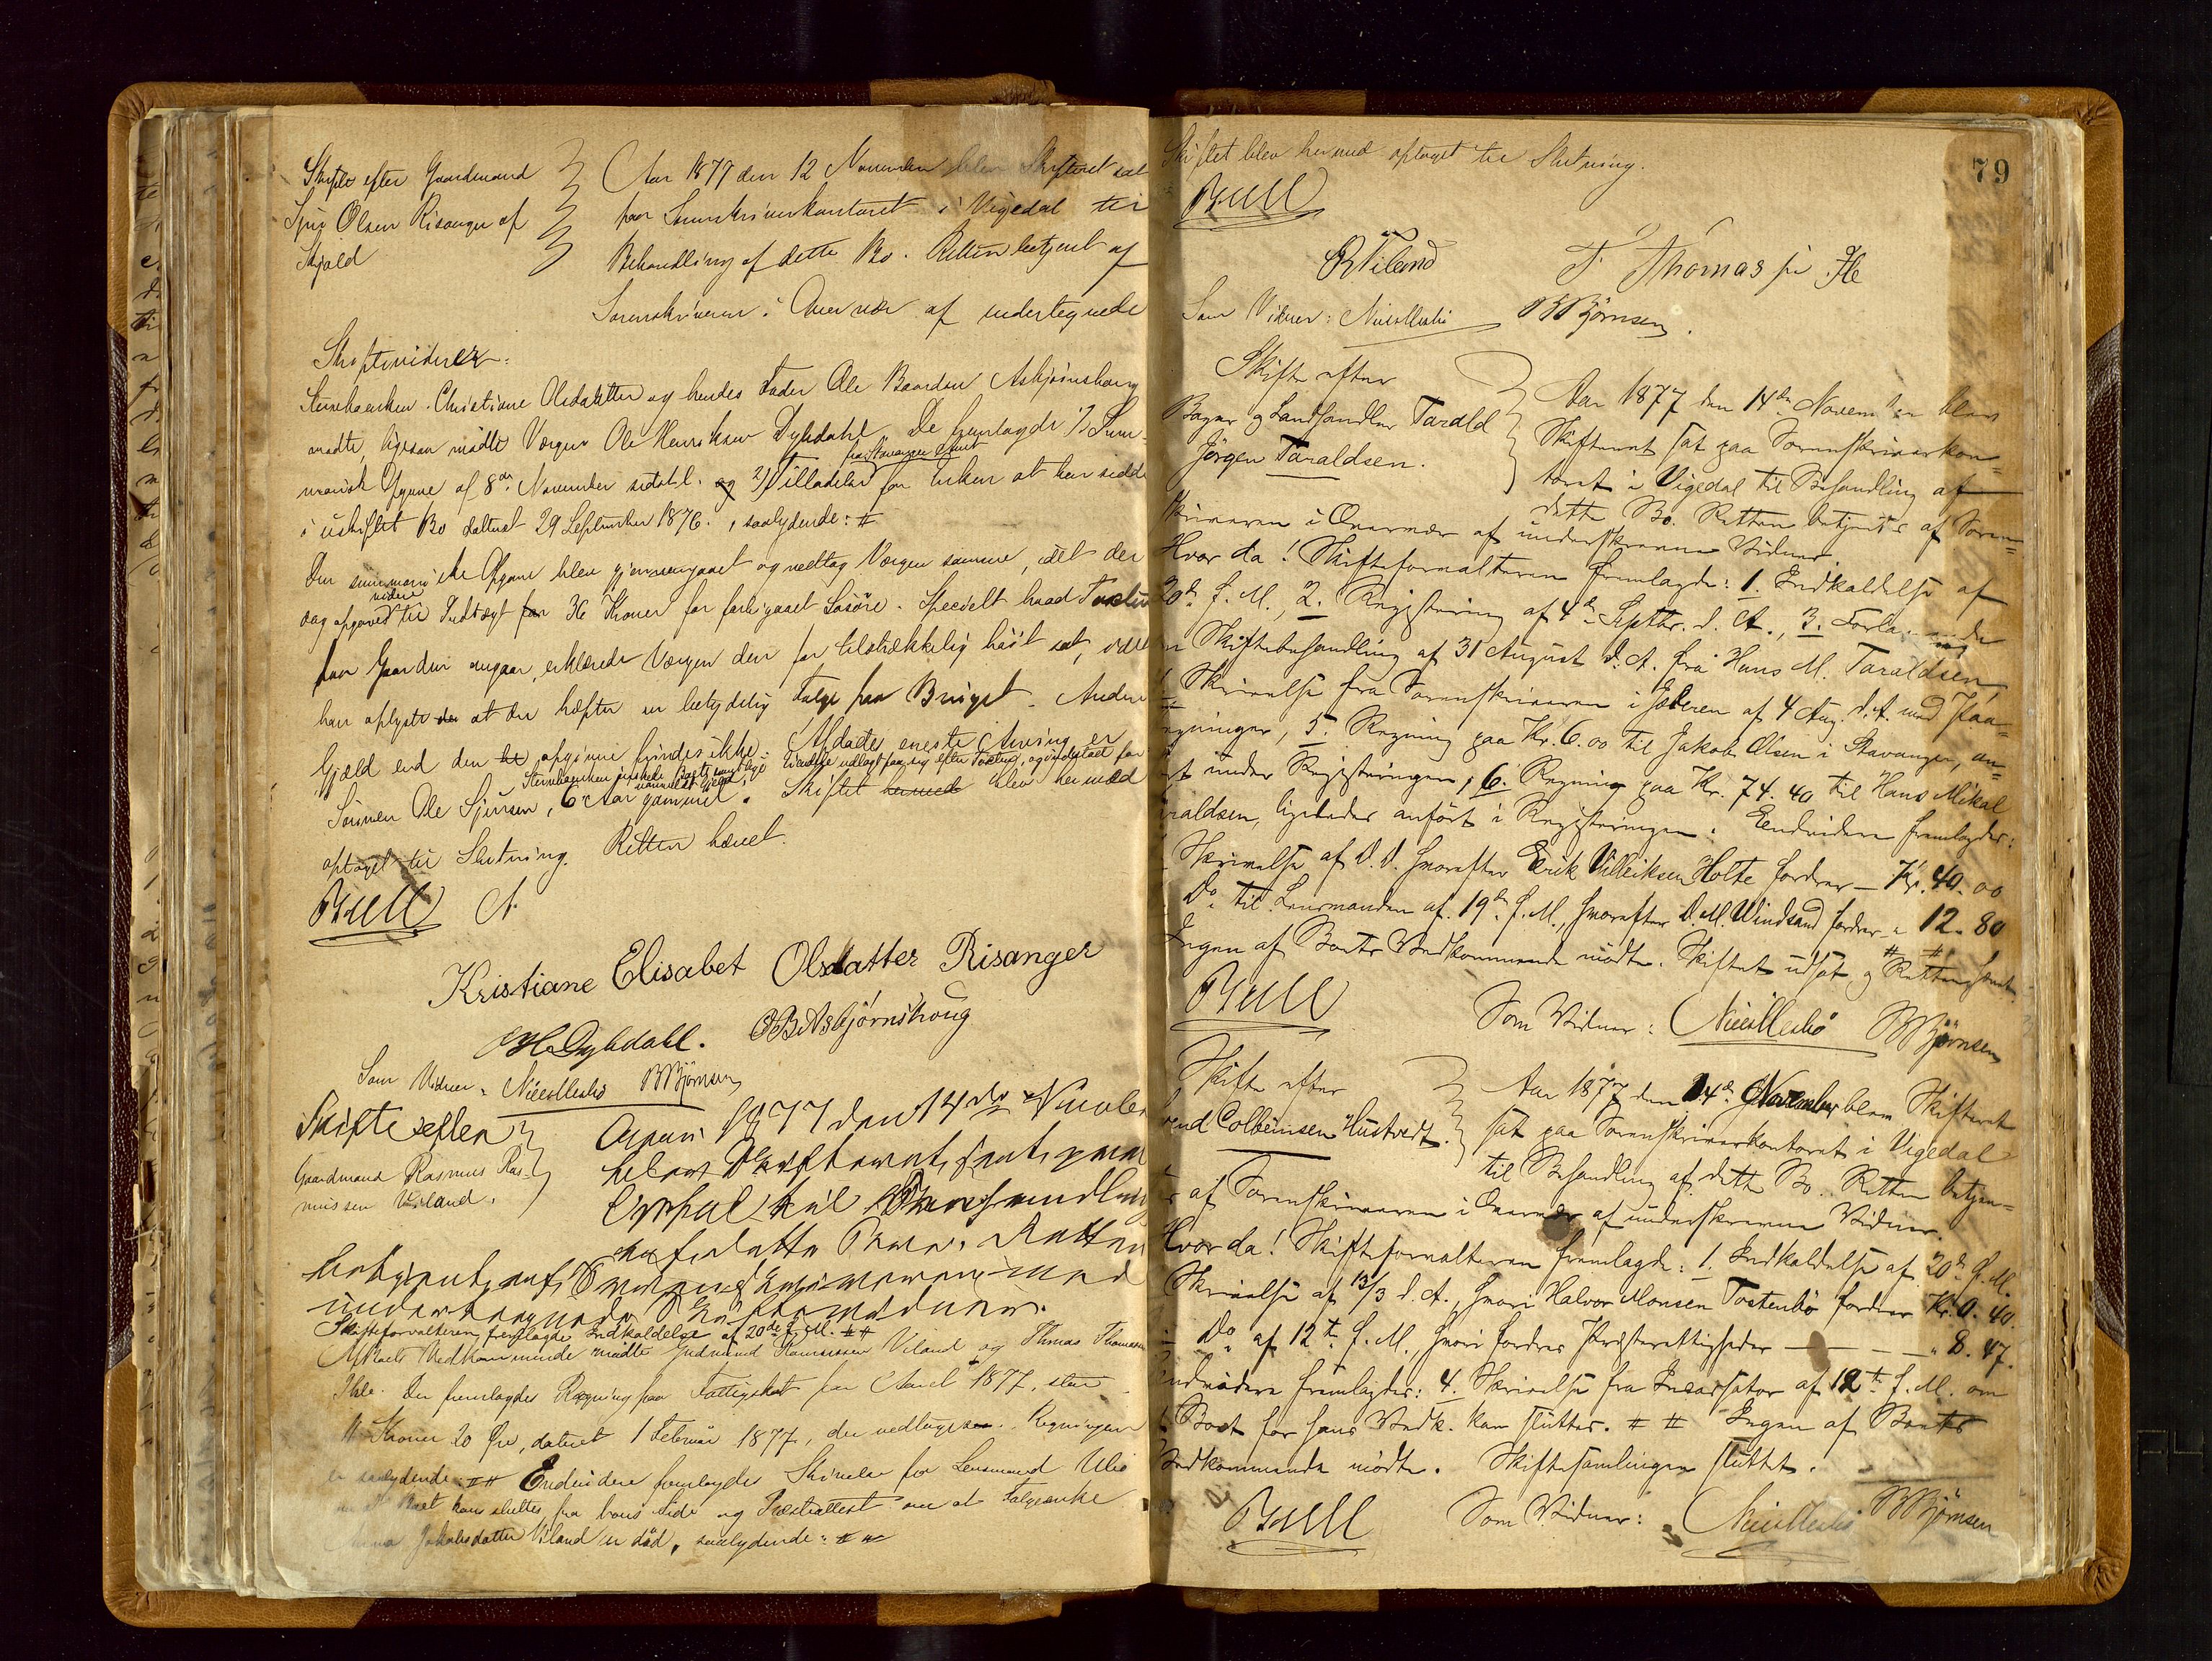 Skifte efter Gaardmand
Sjur Olsen Risanger af
Skjold
Aar 1877 den 12 November blev Skifteret sat
paa Sorenskriverkontoret i Vigedal til
Behandling af dette Bo. Retten betjent af
Sorenskriveren i Overvær af undertegnede
Skiftevidner:
Stervboenken Christiane Olsdatter og hendes Fader Ole Baardsen Asbjørnshaug
mødte, ligesom mødte Værgen Ole Henriksen Dybdahl. De fremlagde 1) Sum-
marisk Opgave af 8de November sidstl. og 2) Tilladelse fra Stavanger Amt for Enken at hen sidde
i uskiftet Bo dateret 29 September 1876, saalydende: #
Den summariske Opgave blev gjennemgaaet og vedtog Værgen samme, idet der
dog opgaves videre til Indtægt 36 Kroner for forhen gaaet Løsøre. Specielt hvad Taxten
paa Gaarden angaar, erklærede Værgen den for tilstrækkelig høit sat, idet
han oplyste at der hæfter en betydelig Følge paa Bruget. Anden
Gjæld end den opgivne findes ikke. Afdødes eneste Arving er
Stervboenken ønskede Boets samtlige Eiendele udlagt paa sig efter Taxten, og indestaar for
Sønnen Ole Sjursen, 6 Aar gammel. Skiftet blev hermed
optaget til Slutning. Retten hævet.
Bull A.
Kristiane Elisabet Olsdatter Risanger
OHDybdahl. OBAsbjørnshoug
Som Vidner: BBjörnsen
Skifte efter
Gaardmand Rasmus Ras-
mussen Vesland.
Aar 1877 den 14de November
blev Skifteret sat paa
Ølphal til Behandling
af dette Bo. Retten
betjent af Sorenskriveren med
undertegnede Skiftevidner.
Skifteforvalteren fremlagde Indkaldelse af 20de f. M. # #
Af Boets Vedkommende mødte Gudmund Rasmussen Viland og Thomas Thomassen
Ihle. Der fremlagdes Regning paa Fattigskat for Aaret 1877, stor
11 Kroner 20 Øre, dateret 1 Februar 1877, der vedtoges. Regningen
er saalydende: # # Endvidere fremlagdes Skrivelse fra Lensmand
om at Boet kan sluttes fra hans Side og Præsteattest om at Følgeenke
Anna Jakobsdatter Viland er død, saalydende: # #
79
Skiftet blev hermed optaget til Slutning.
Bull
T. Thomas
Som Vidner: BBjörnsen.
Skifte efter
Bager og Landhandler Tarald
Jörgen Taraldsen.
Aar 1877 den 14de November blev
Skifteret sat paa Sorenskriverkon-
toret i Vigedal til Behandling af
dette Bo. Retten betjentes af Soren-
skriveren i Overvær af underskrevne Vidner.
Hvor da! Skifteforvalteren fremlagde: 1. Indkaldelse af
20de f. M., 2. Registrering af 4de Septbr. d. A., 3. Forlangende
om Skiftebehandling af 31 August d. A. fra Hans M. Taraldsen,
4. Skrivelse fra Sorenskriveren i Jæderen af 4 Aug. d. A. med Paa-
tegninger, 5. Regning paa Kr. 6.00 til Jakob Olsen i Stavanger, an-
ført under Registreringen, 6. Regning paa Kr. 74.40 til Hans Mikal
Taraldsen, ligeledes anført i Registreringen. Endvidere fremlagdes:
Skrivelse af D. D. hvorefter Erik Villeiksen Holte fordrer – Kr. 40.00
Do. til Lensmanden af 19de f. M., hvorefter D. M. Windsand fordrer – " 12.80
Ingen af Boets Vedkommende mødte. Skiftet udsat og Retten hævet.
Bull
Som Vidner: BBjörnsen
Skifte efter
Colbeinsen Hustvedt.
Aar 1877 den 14de November blev Skifteret
sat paa Sorenskriverkontoret i Vigedal
til Behandling af dette Bo. Retten betjen-
tes af Sorenskriveren i Overvær af underskrevne Vidner.
Hvor da! Skifteforvalteren fremlagde: 1. Indkaldelse af 20de f. M.
Skrivelse af 13/3 d. A., hvori Halvor Monsen Tostenbö fordrer Kr. 0.40.
Do. af 12te f. M., hvori fordres Præsterettigheder — — — " 8.47.
Endvidere fremlagdes: 4. Skrivelse fra Incassator af 12te f. M. om
at Boet for hans Vedk. kan sluttes. # # Ingen af Boets
Vedkommende mødte. Skiftesamlingen sluttet.
Bull
Som Vidner: BBjörnsen